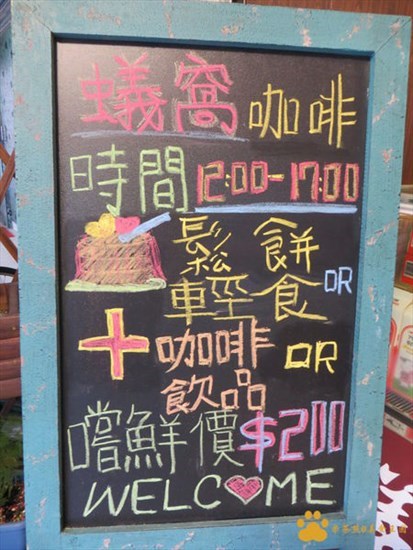 蟻窩咖啡
時間12:00-17:00
鬆餅OR
輕食
+咖啡OR
飲品
嚐鮮價$200
WELCOME